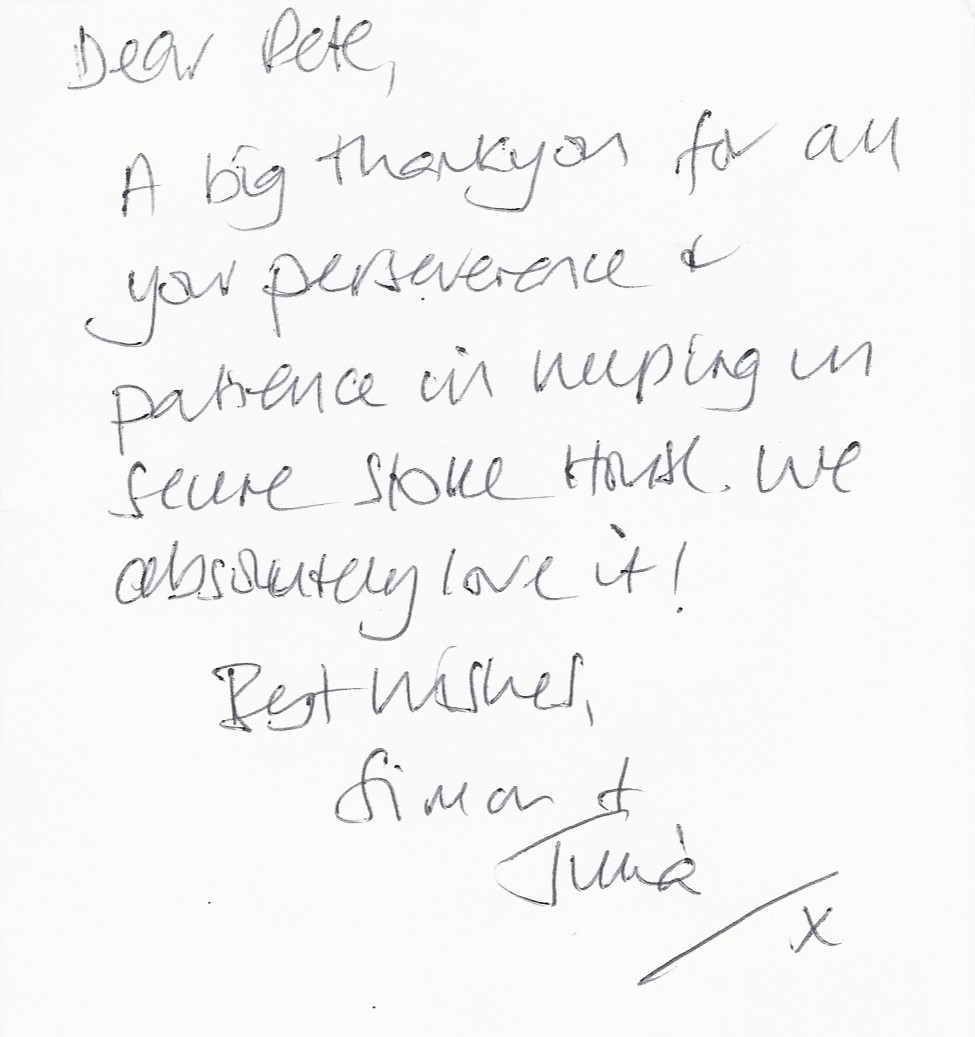 Dear Pete,
A big thankyou for all
your perseverence &
patience in helping us
secure Stoke House. We
absolutely love it!
Best Wishes,
Simon &
Julia
x